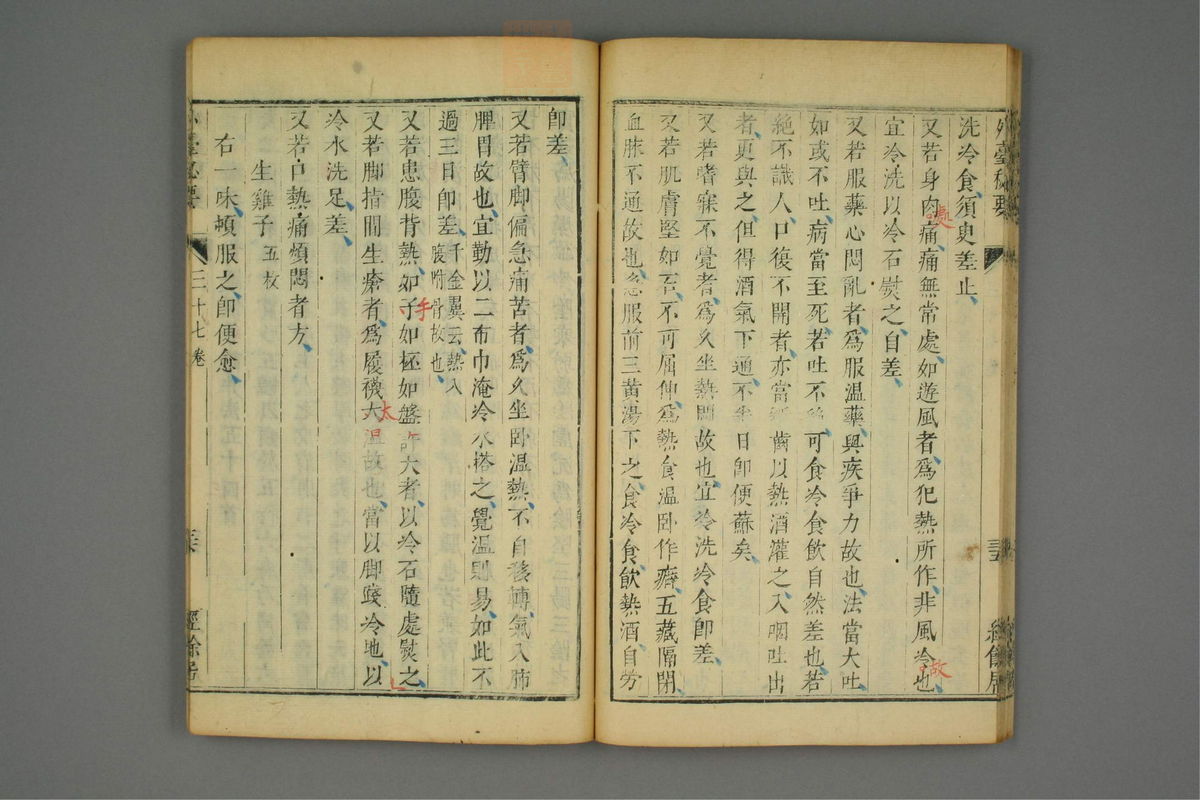 外臺秘要
洗冷食須臾差止
又若身肉痛痛無常處如遊風者爲犯熱所作非風冷也
處
故
宜冷洗以冷石熨之自差
又若服藥心悶亂者爲服温藥與疾爭力故也法當大吐
如或不吐病當至死若吐不 可食冷食飲自然差也若
絶不識人口復不開者亦當 齒以熱酒灌之入咽吐出
者更與之但得酒氣下通不 日即便蘇矣
又若嗜寐不覺者爲久坐熱悶故也宜冷洗冷食即差
又若肌膚堅如石不可屈伸爲熱食温卧作癖五藏隔閉
血脉不通故也急服前三黄湯下之食冷食飲熱酒自勞
即差
又若臂脚偏急痛苦者爲久坐卧温熱不自移轉氣入肺
脾胃故也宜勤以二布巾淹冷水搭之覺温則易如此不
過三日即差千金翼云熱入
腹附骨故也
又若患腹背熱如子如柸如盤許大者以冷石隨處熨之
手
又若脚揩間生瘡者爲履襪大温故也當以脚踐冷地以
太
冷水洗足差
又若口熱痛煩悶者方
生雞子五枚
右一味頓服之即便愈
三十七卷
經餘居